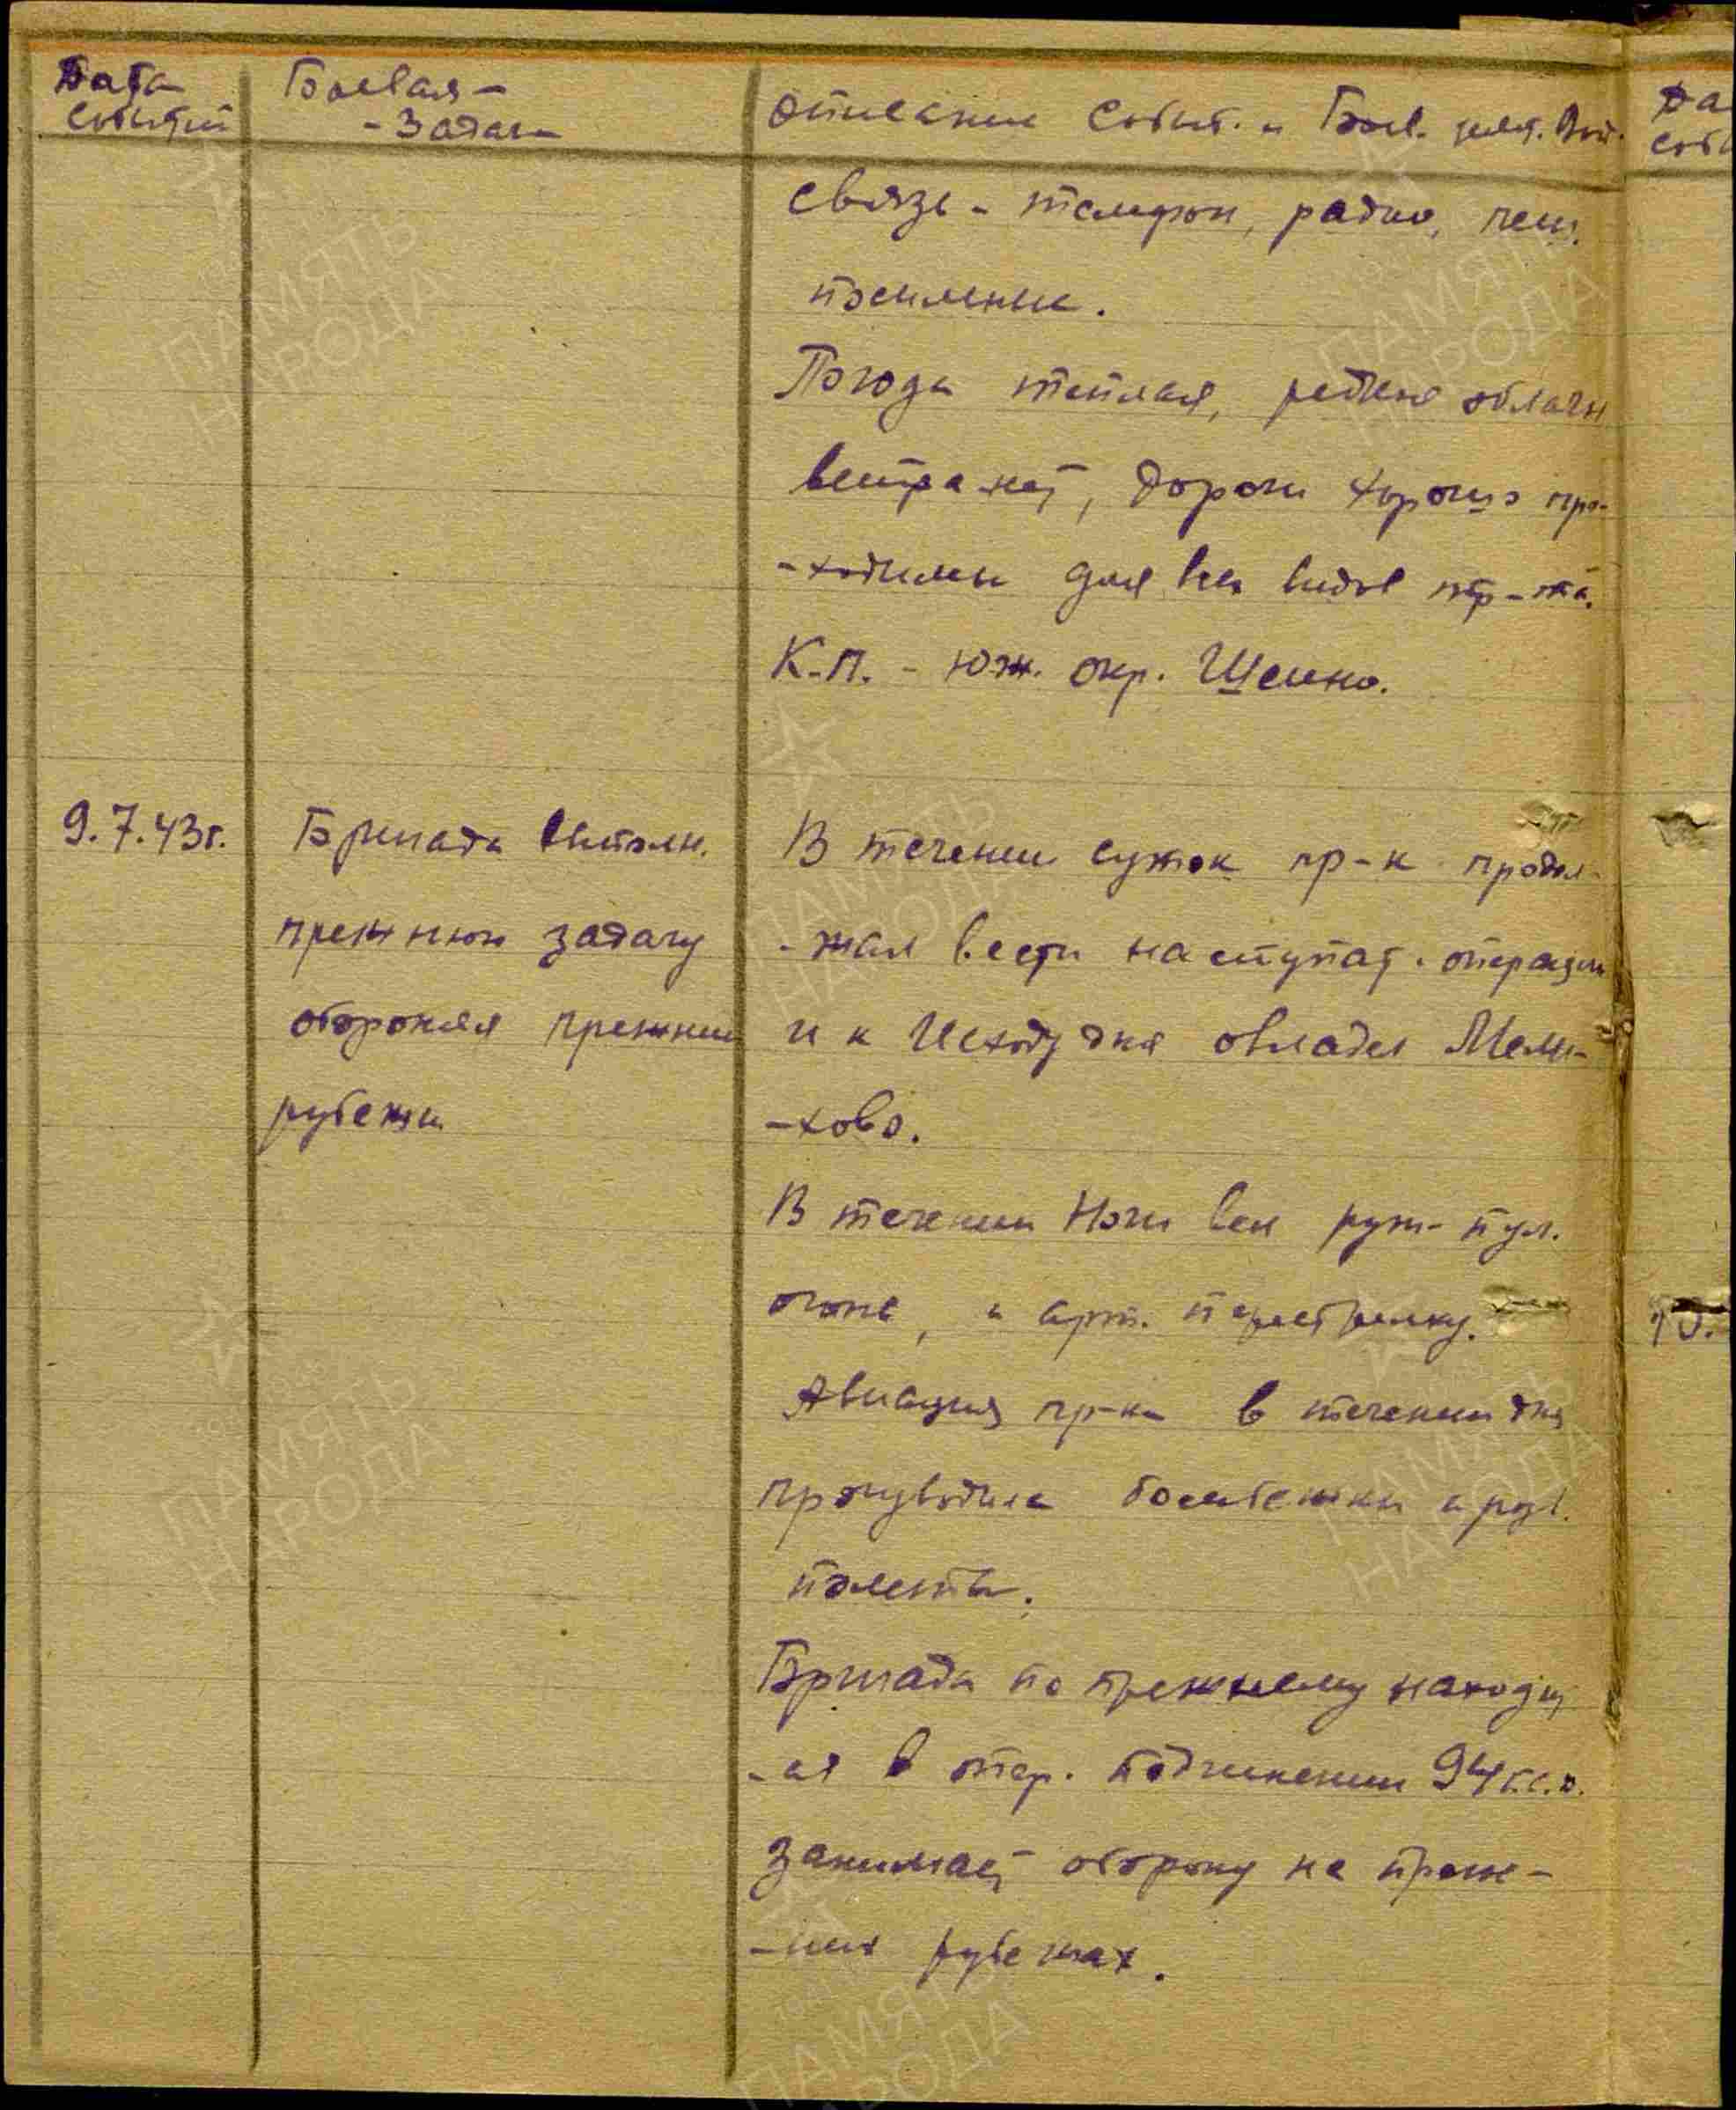 Дата
событий
Боевая-
-Задача
Описание событ. и Боев. деят. Войск.
Да
собы
связь - телефон, радио, пеш.
посыльные.
Погода теплая, редкая облачн
ветра нет, дороги хорошо про-
-ходимы для всех видов тр-та.
К.П. - Юж. окр. Шеино.
9.7.43г.
Бригада выполн.
прежнюю задачу
обороняя прежние
рубежи
В течении суток пр-к продол-
-жал вести наступат. операции
и к исходу дня овладел Мели-
-хово.
В течении ночи вел руж-пул.
огонь, и арт. перестрелку.
Авиация пр-ка в течении дня
производила бомбежки и разв.
полеты.
Бригада по прежнему находит
-ся в опер. подчинении 94 г.с.д.
занимает оборону на преж-
-них рубежах.
10.
ПАМЯТЬ
НАРОДА
ПАМЯТЬ
НАРОДА
ПАМЯТЬ
НАРОДА
ПАМЯТЬ
НАРОДА
ПАМЯТЬ
НАРОДА
ПАМЯТЬ
НАРОДА